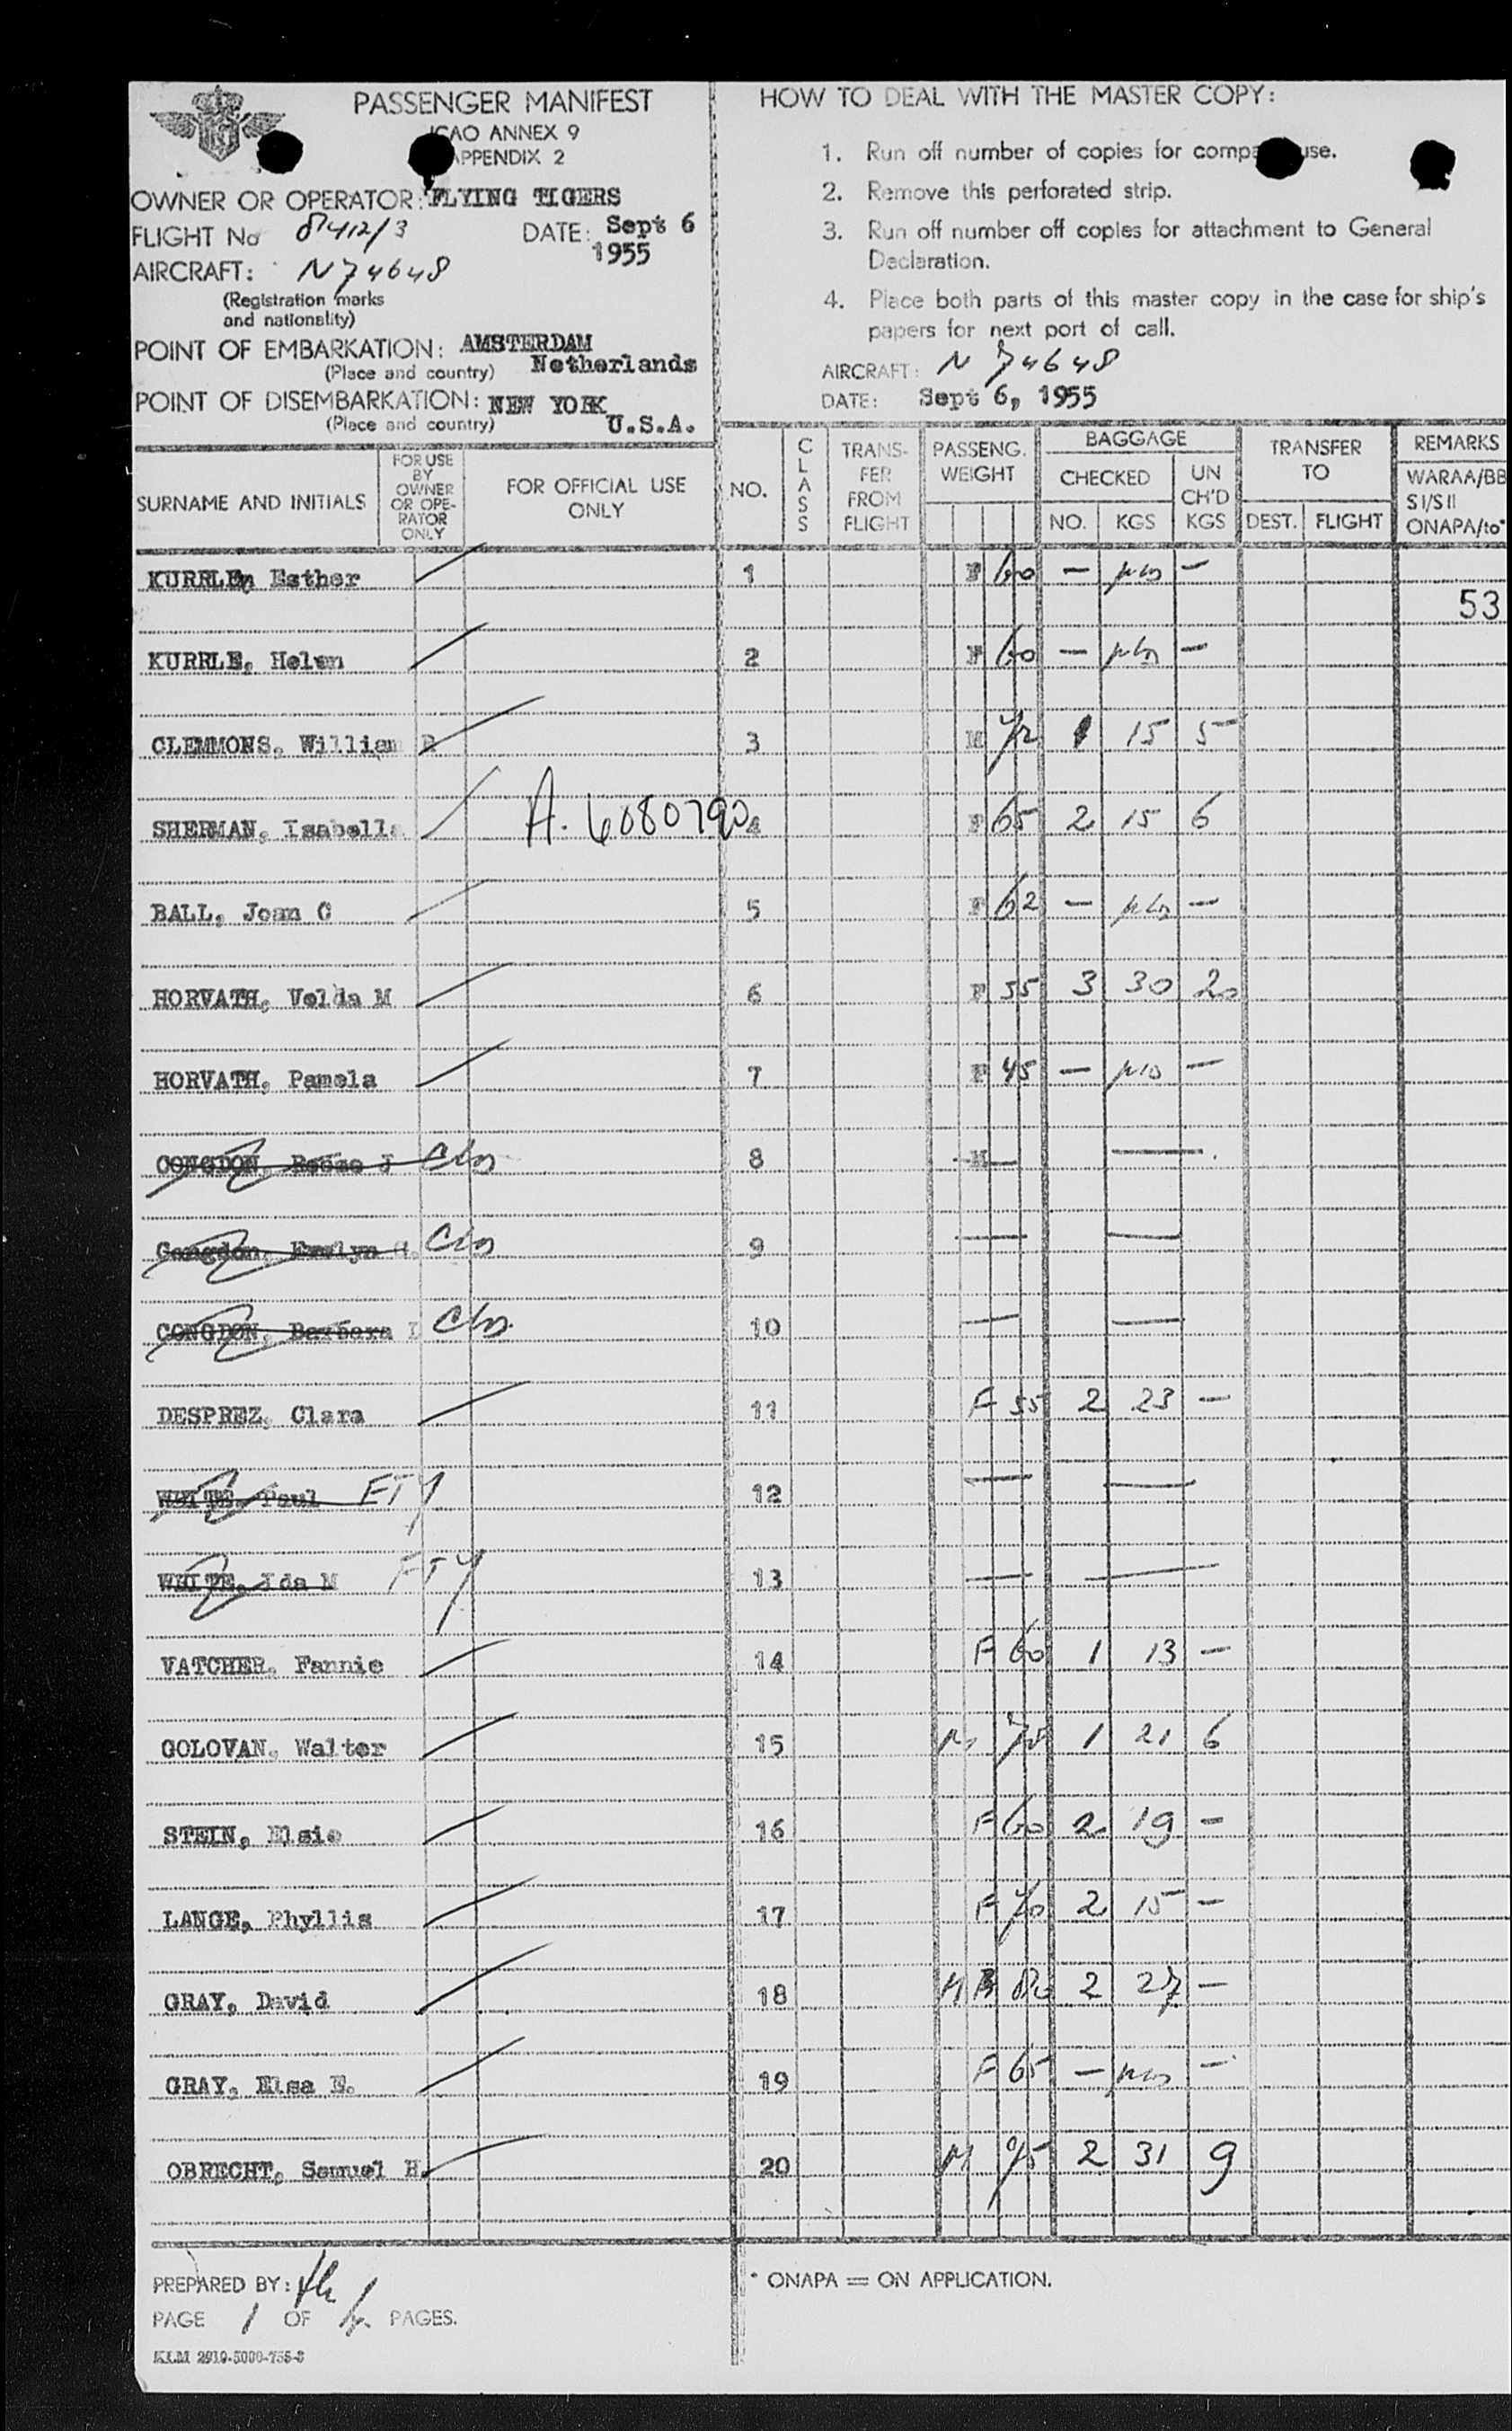 PASSENGER MANIFEST
ICAO ANNEX 9
APPENDIX 2
OWNER OR OPERATOR: FLYING TIGERS
FLIGHT No 8412/3 DATE: Sept 6
1955
AIRCRAFT: N74648
(Registration marks
and nationality)
POINT OF EMBARKATION: AMSTERDAM
(Place and country) Netherlands
POINT OF DISEMBARKATION: NEW YORK
(Place and country) U.S.A.
HOW TO DEAL WITH THE MASTER COPY:
1. Run off number of copies for use.
2. Remove this perforated strip.
3. Run off number off copies for attachment to General
Declaration.
4. Place both parts of this master copy in the case for ship's
papers for next port of call.
AIRCRAFT: N 74648
DATE: Sept 6, 1955
SURNAME AND INITIALS
FOR USE
BY
OWNER
OR OPE-
RATOR
ONLY
FOR OFFICIAL USE
ONLY
NO.
CLASS
TRANS-
FER
FROM
FLIGHT
PASSENG.
WEIGHT
BAGGAGE
CHECKED
NO. KGS
UN
CH'D
KGS
TRANSFER
TO
DEST. FLIGHT
REMARKS
WARAA/BB
SI/SII
ONAPA/to*
KURRLE, Esther 1 F 60 — —
53
KURRLE, Helen 2 F 60 — —
CLEMMONS, William R 3 M 72 1 15 5
SHERMAN, Isabella A. 6080790 4 F 65 2 15 6
BALL, Joan C 5 F 62 — —
HORVATH, Velda M 6 F 55 3 30 20
HORVATH, Pamela 7 F 45 — —
CONGDON, J 8 M — —
Congdon, Evelyn 9 — —
CONGDON, Barbara 10 — —
DESPREZ, Clara 11 F 55 2 23 —
WHITE, Paul 12 — —
WHITE, Ida M 13 — —
VATCHER, Fannie 14 F 60 1 13 —
GOLOVAN, Walter 15 M 78 1 21 6
STEIN, Elsie 16 F 60 2 19 —
LANGE, Phyllis 17 F 70 2 15 —
GRAY, David 18 M 80 2 27 —
GRAY, Elsa E. 19 F 65 — —
OBRECHT, Samuel H. 20 M 95 2 31 9
PREPARED BY:
PAGE 1 OF PAGES.
KLM 2910-5000-755-3
* ONAPA = ON APPLICATION.